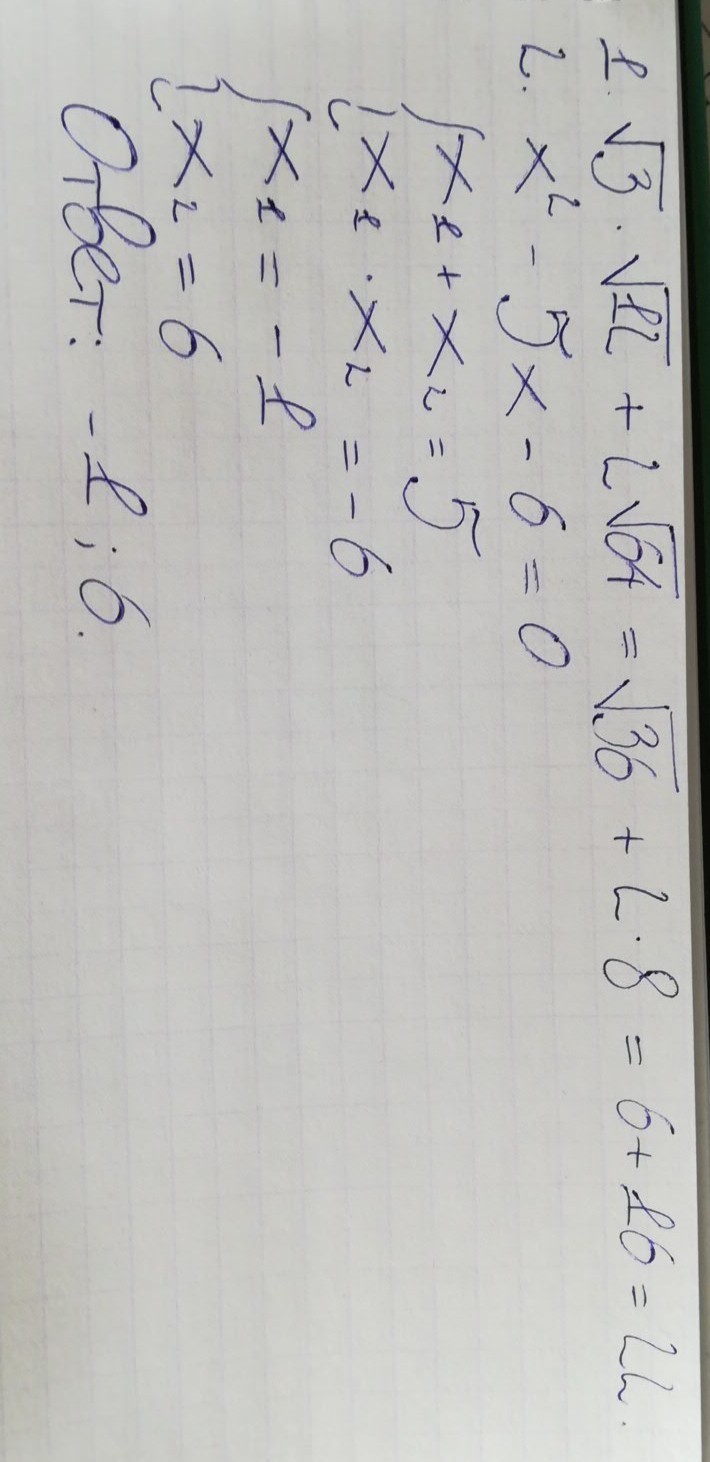 1. √3 · √12 + 2√64 = √36 + 2 · 8 = 6 + 16 = 22.
2. x² - 5x - 6 = 0
{ x₁ + x₂ = 5
{ x₁ · x₂ = -6
{ x₁ = -1
{ x₂ = 6
Ответ: -1; 6.